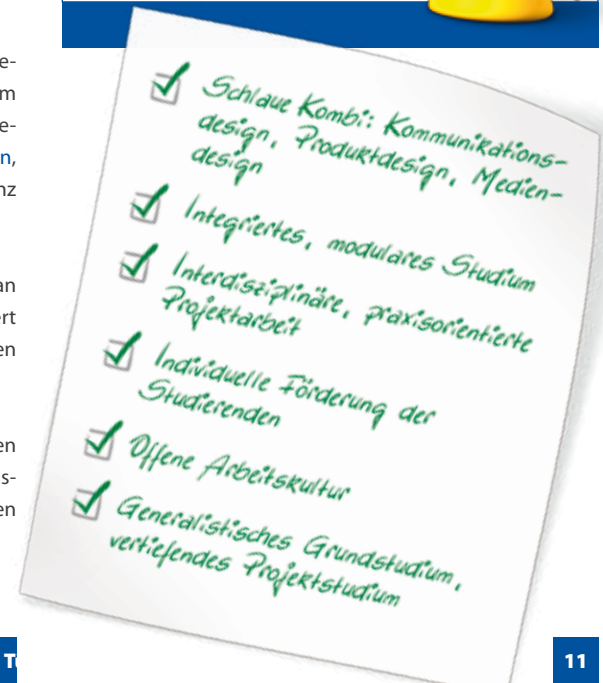 e-
m
e-
n,
nz
an
ert
en
en
s-
en
Schlaue Kombi: Kommunikations-
design, Produktdesign, Medien-
design
Integriertes, modulares Studium
Interdisziplinäre, praxisorientierte
Projektarbeit
Individuelle Förderung der
Studierenden
Offene Arbeitskultur
Generalistisches Grundstudium,
vertiefendes Projektstudium
11